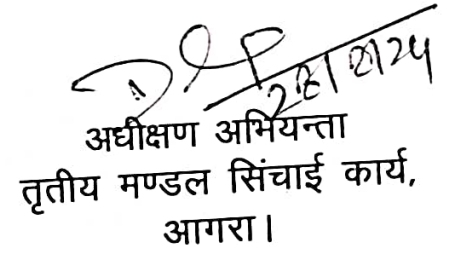 अधीक्षण अभियन्ता
तृतीय मण्डल सिंचाई कार्य,
आगरा।